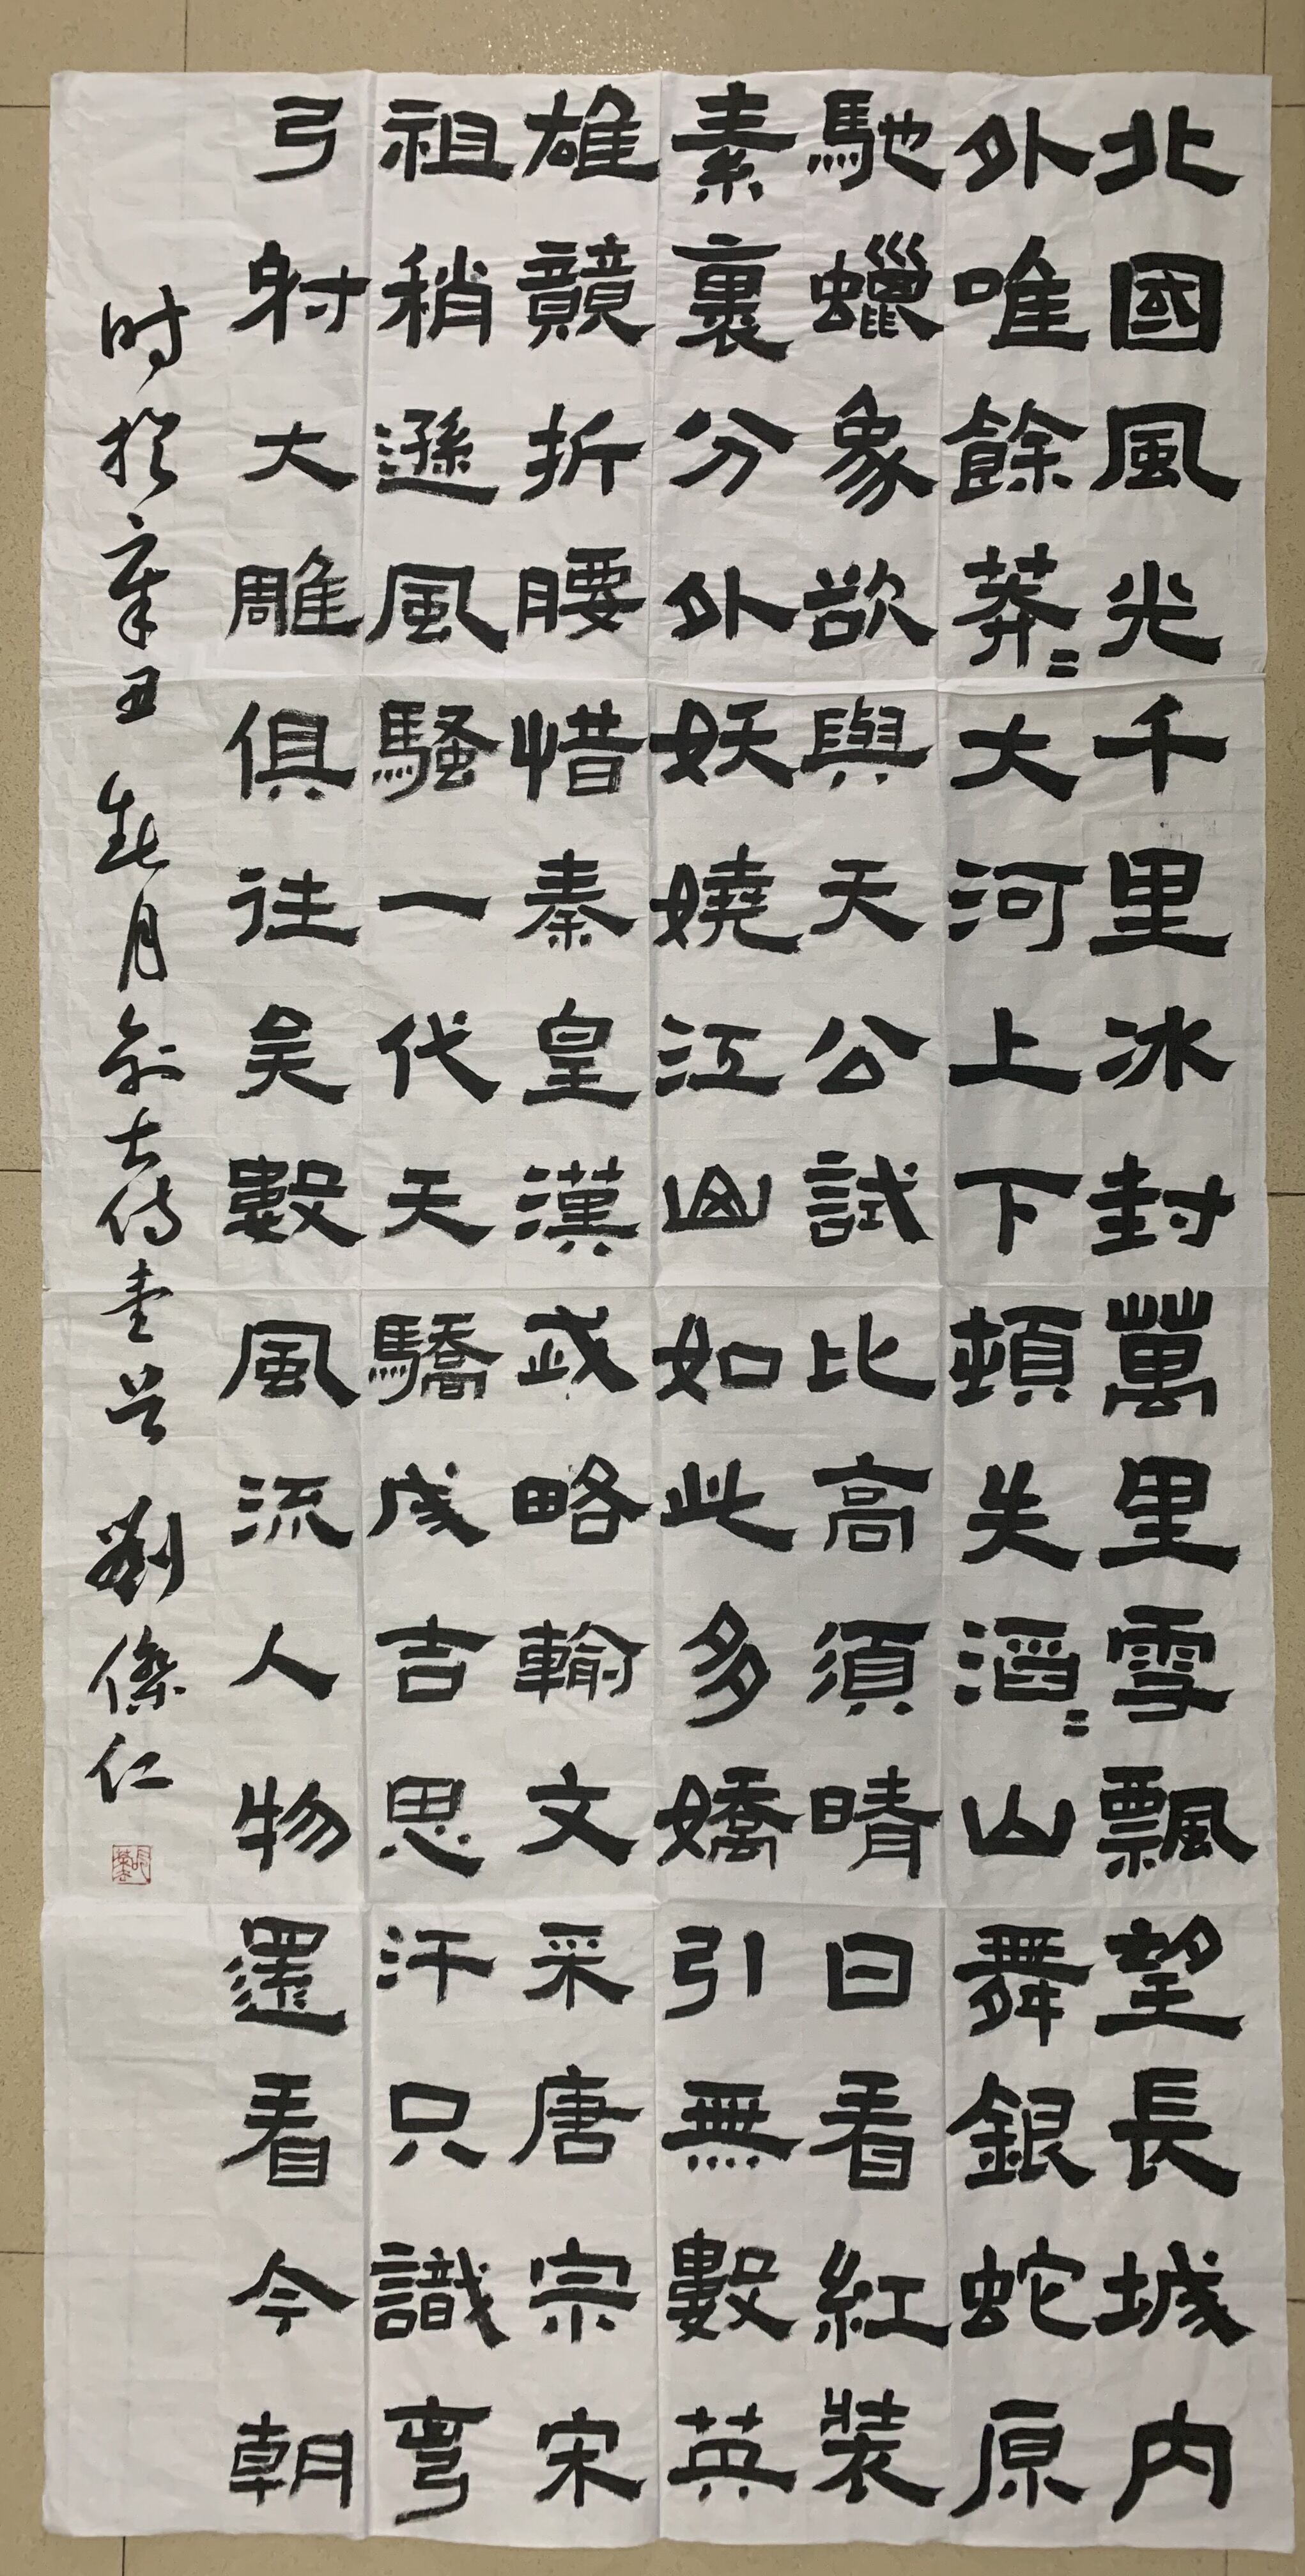 北國風光千里冰封萬里雪飄望長城内
外唯餘莽〻大河上下頓失滔〻山舞銀蛇原
馳蠟象欲與天公試比高須晴日看紅裝
素裹分外妖嬈江山如此多嬌引無數英
雄競折腰惜秦皇漢武略輸文采唐宗宋
祖稍遜風騷一代天驕成吉思汗只識彎
弓射大雕俱往矣數風流人物還看今朝
时於辛丑月堂劉傑仁